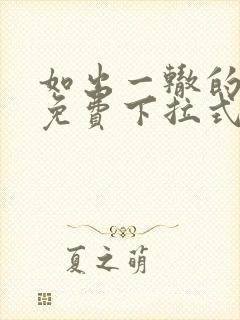 如出一辙的
免费下拉式
夏之萌